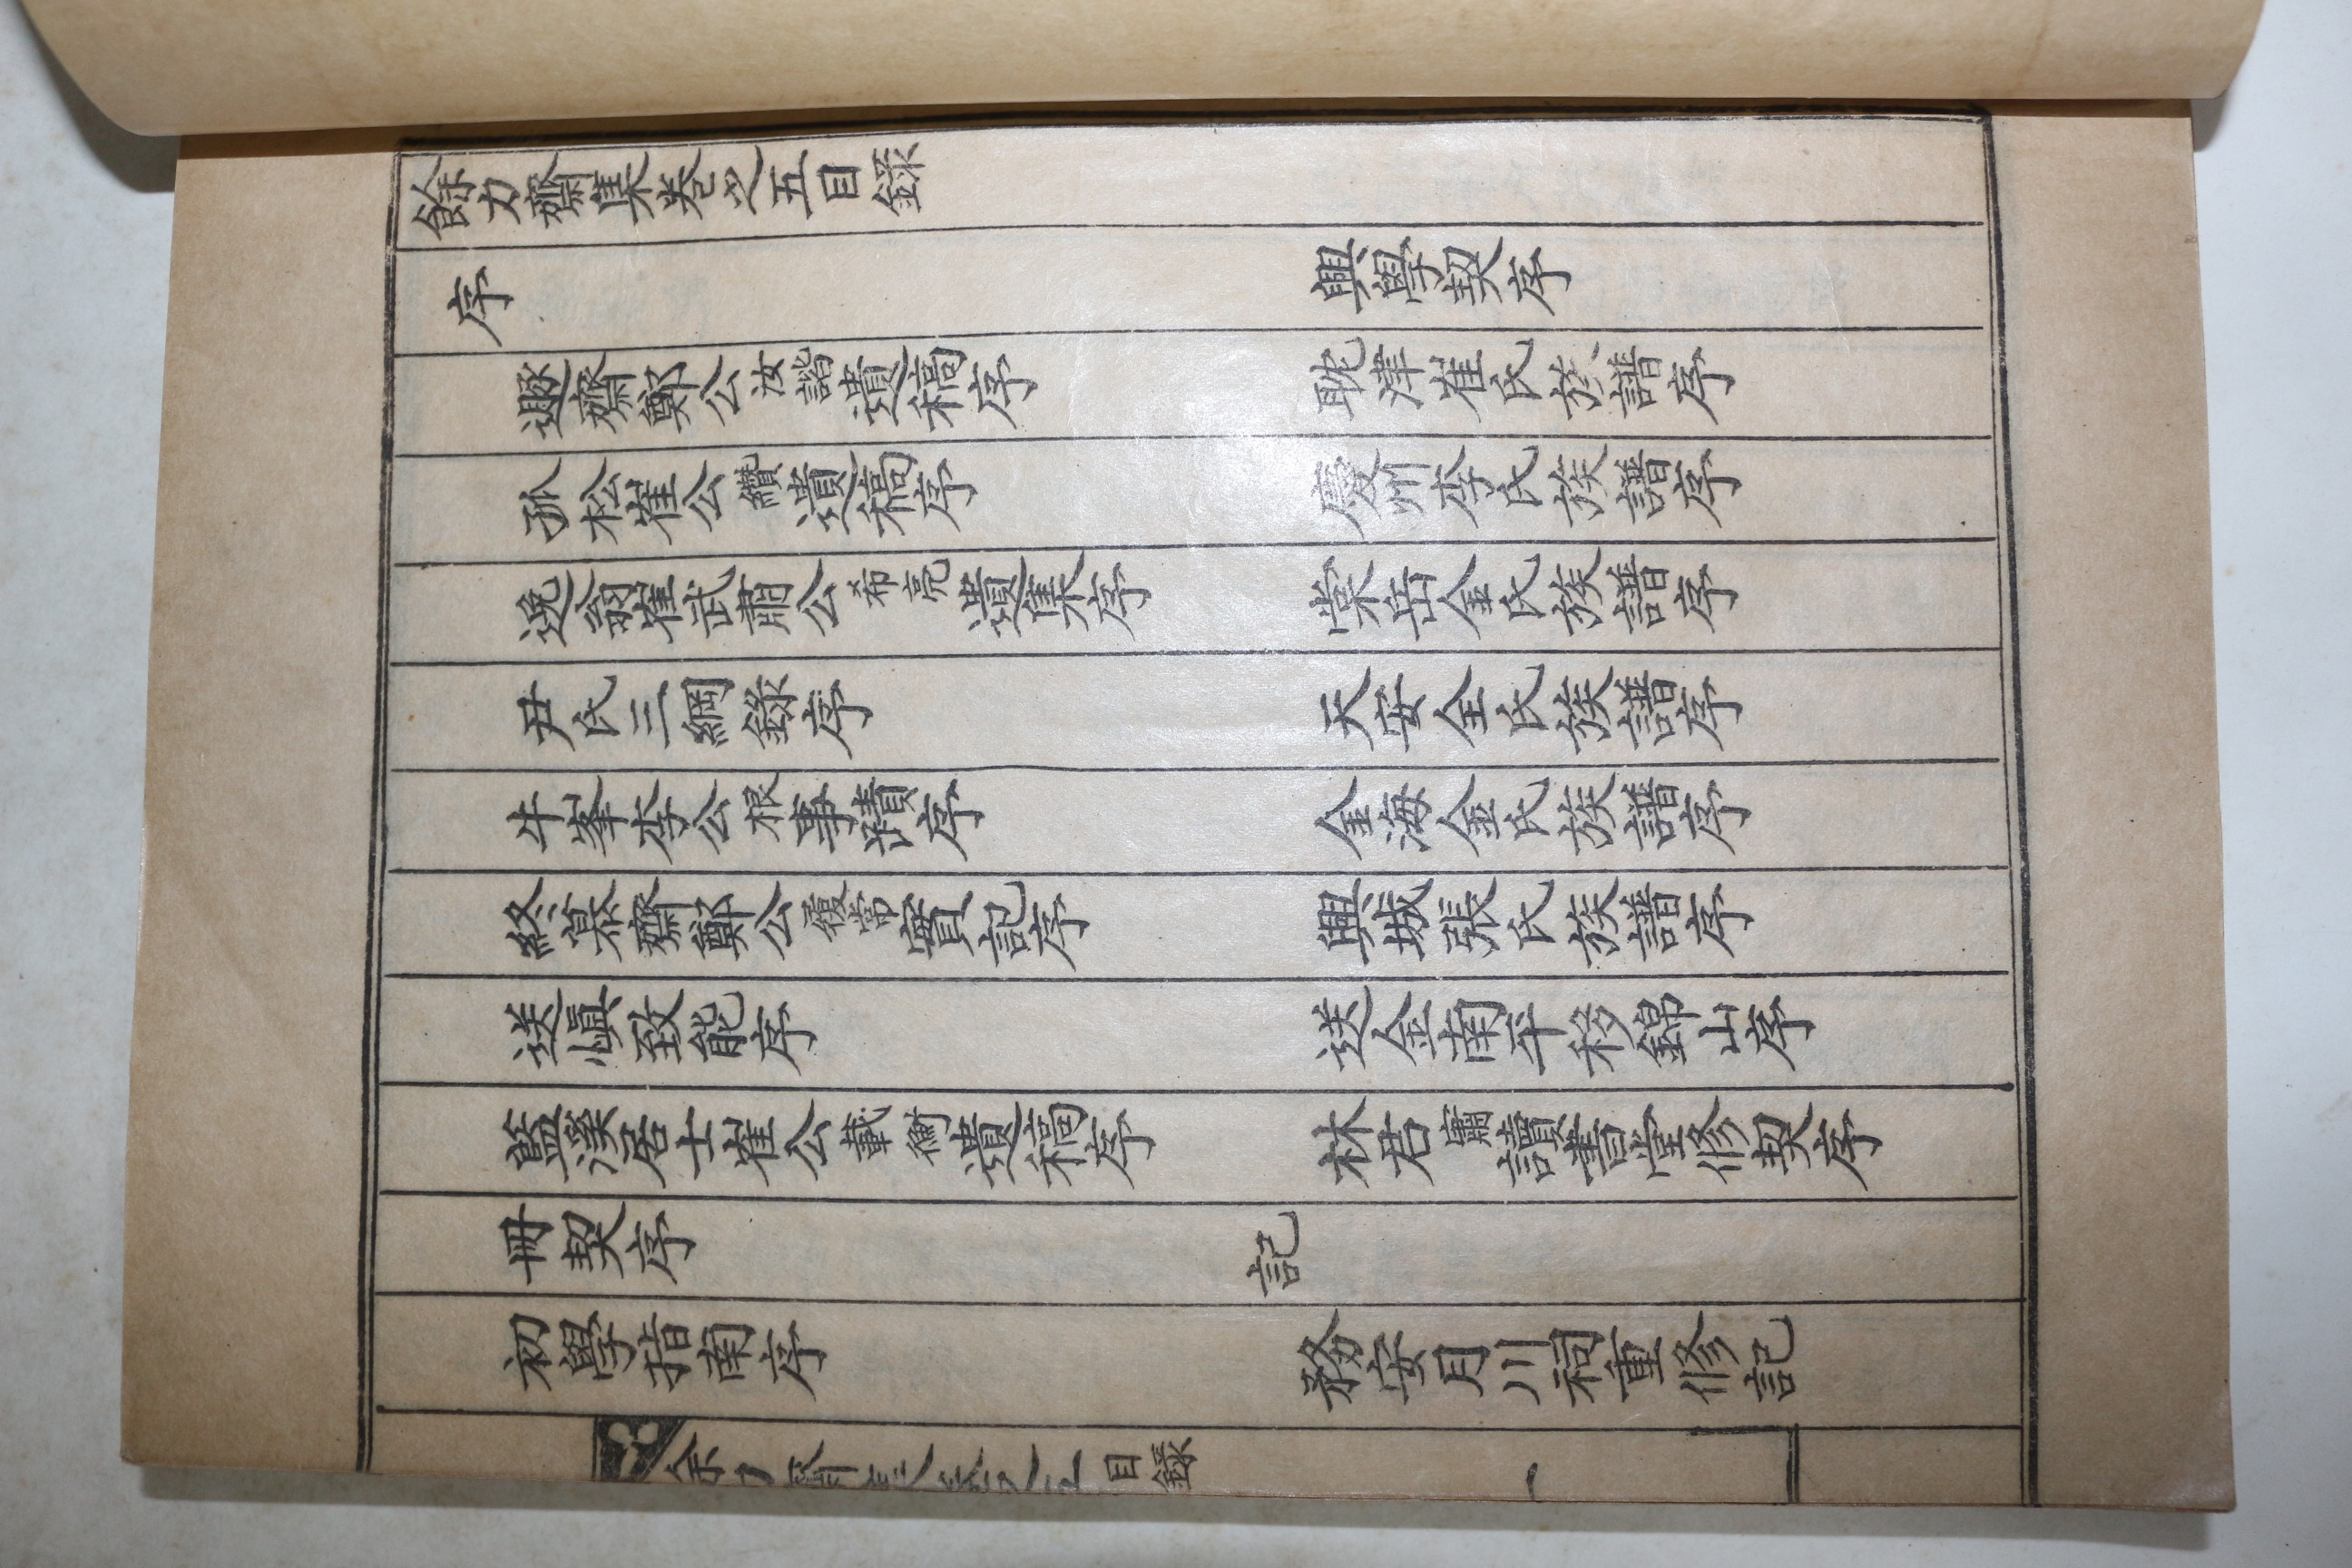 餘力齋集卷之五目錄
序
興學契序
遯齋鄭公汝諧遺稿序
耽津崔氏族譜序
孤松崔公纘遺稿序
慶州李氏族譜序
逸翁崔武肅公希亮遺集序
棠岳金氏族譜序
尹氏三綱錄序
天安全氏族譜序
牛峯李公根事蹟序
金海金氏族譜序
終慕齋鄭公履常實記序
興城張氏族譜序
送愼致能序
送金南平移錦山序
藍溪居士崔公載衡遺稿序
林君讀書堂修契序
冊契序
記
初學指南序
務安月川祠重修記
餘力齋集卷之五 目錄
一